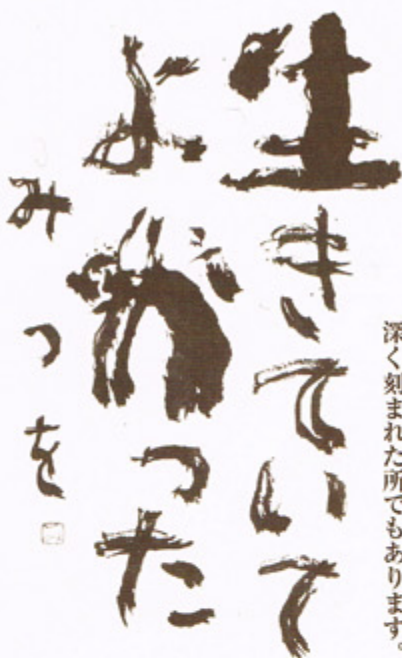 深く刻まれた所でもあります。
生きていて
よかった
みつを